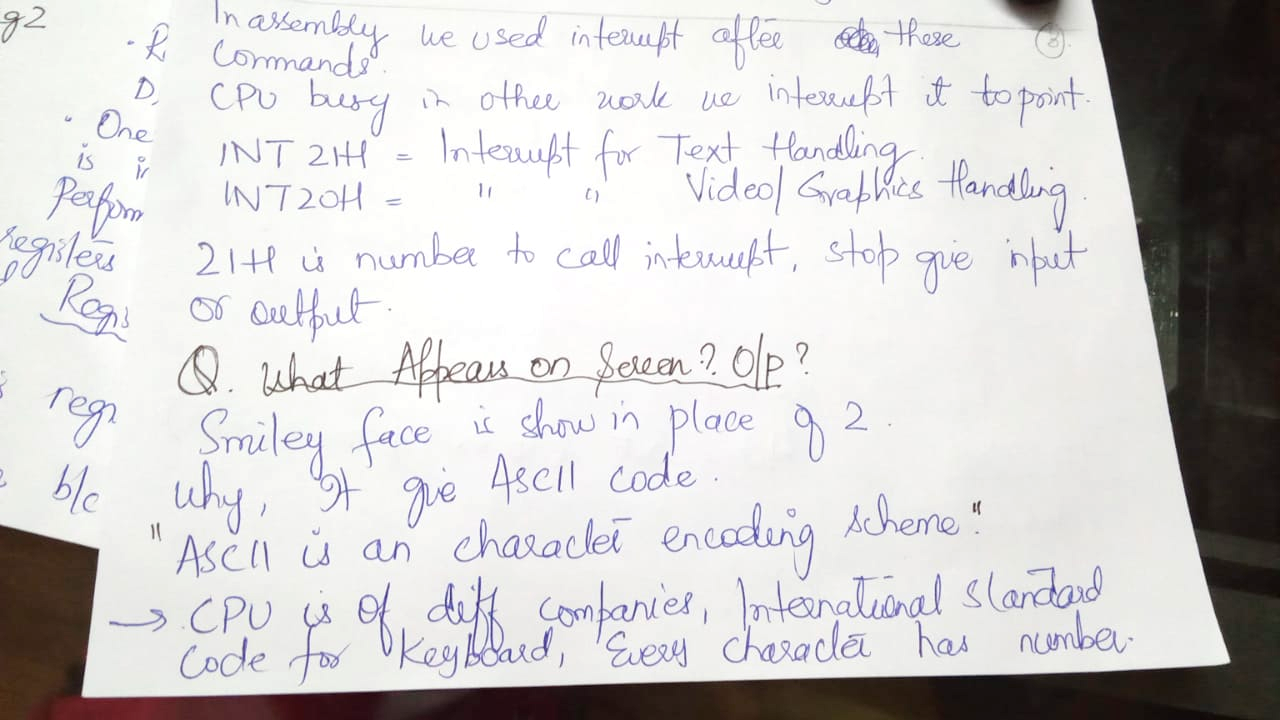 g2
· R
D,
· One
is in
Perform
registers
Regis
regi
b/c
In assembly we used interrupt after these 3.
Commands.
CPU busy in other work we interrupt it to print.
INT 21H = Interrupt for Text Handling.
INT20H = " " Video/Graphics Handling.
21H is number to call interrupt, stop give input
or output.
Q. What Appears on Screen? O/P?
Smiley face is show in place of 2.
Why, It give ASCII code.
"ASCII is an character encoding scheme."
→ CPU is of diff companies, International standard
Code for Keyboard, Every character has number.